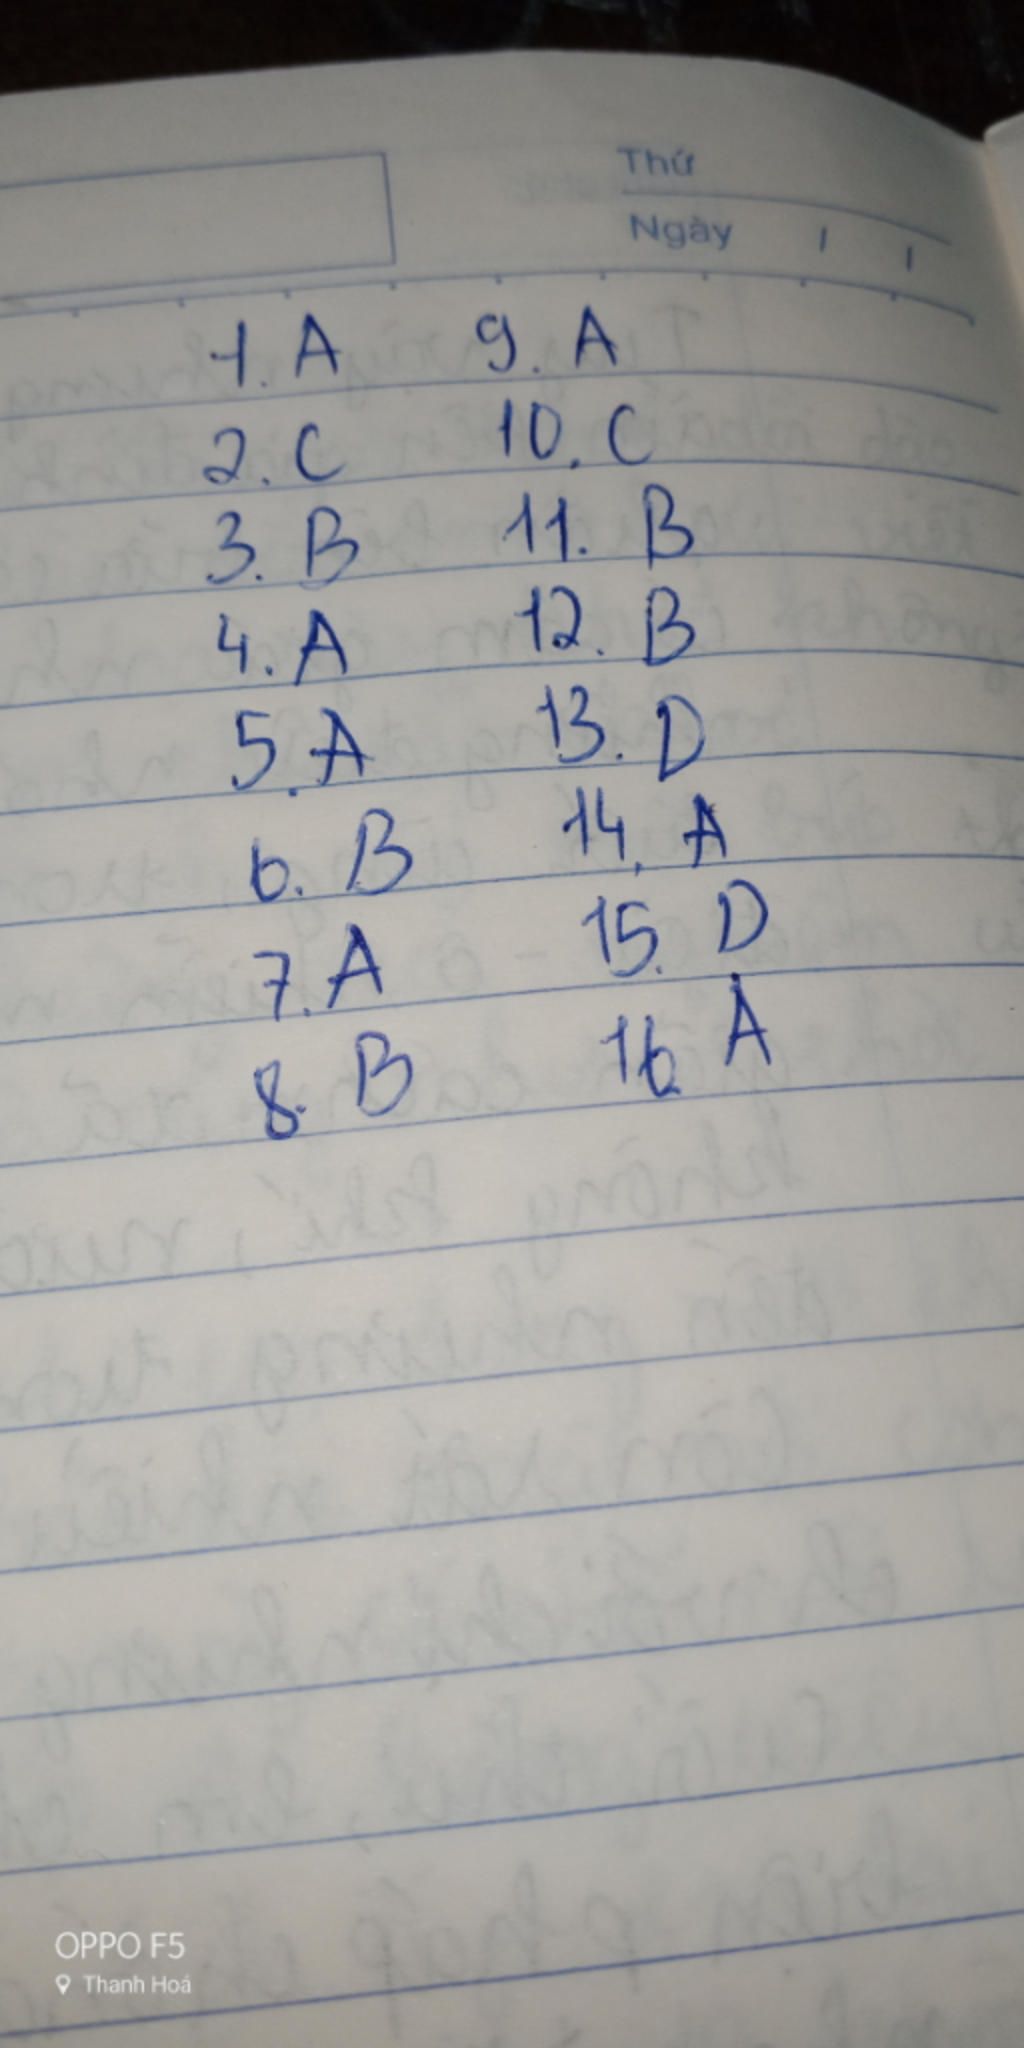 Thứ
Ngày / /
1. A 9. A
2. C 10. C
3. B 11. B
4. A 12. B
5. A 13. D
6. B 14. A
7. A 15. D
8. B 16. A
OPPO F5
Thanh Hoá